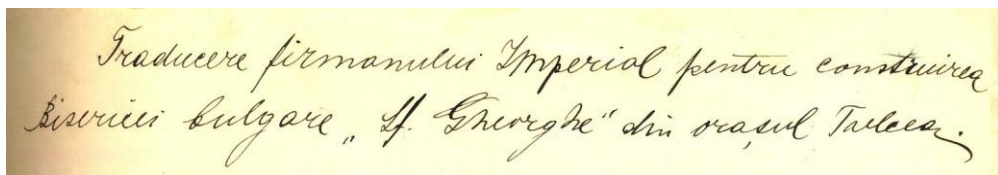 Traducere firmanului Imperial pentru construirea
Bisericei bulgare „Sf. Gheorghe" din orașul Tulcea.